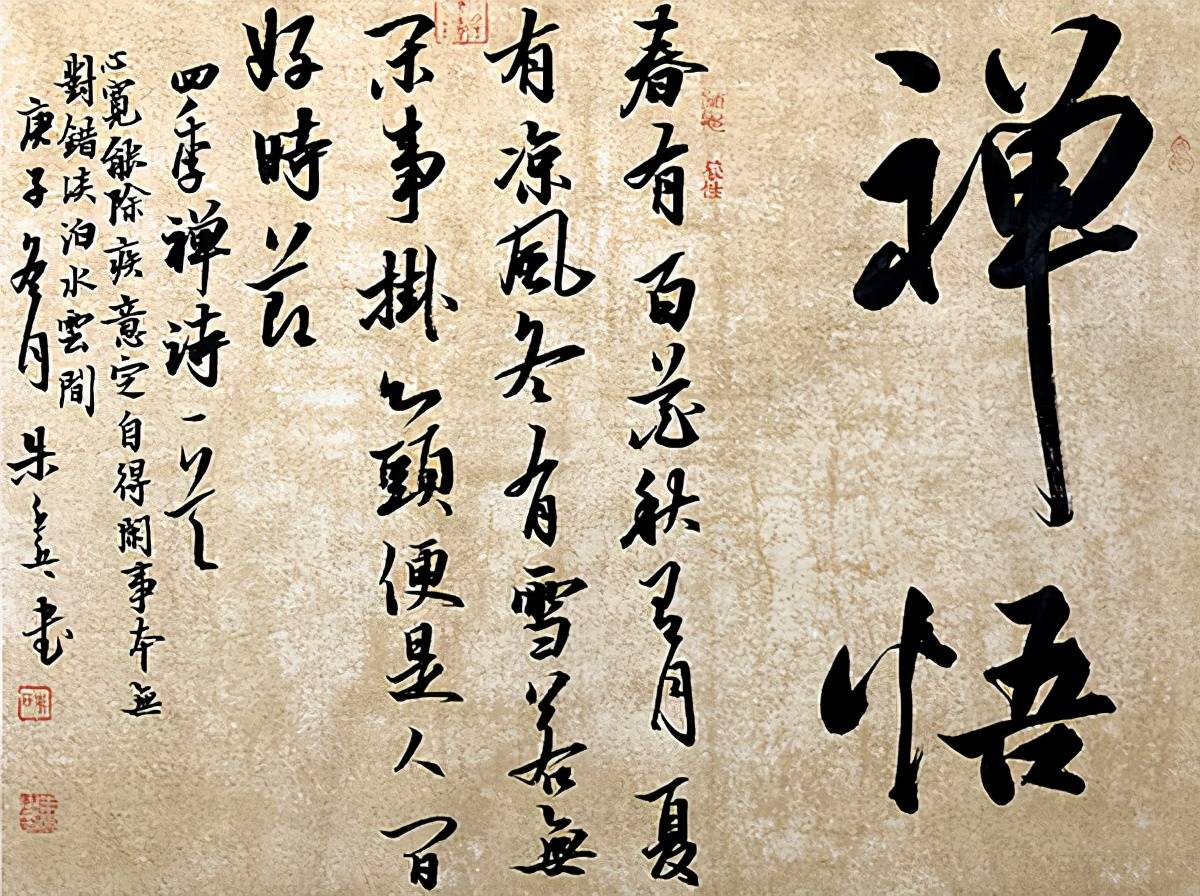 禅悟
春有百花秋有月夏
有凉風冬有雪若無
闲事掛心頭便是人间
好時节
四季禅诗一首
心寬能除疾意定自得閑事本無
對錯淡泊水雲間
庚子冬月 朱 書